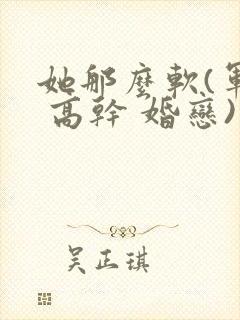 她那麼軟(軍
高幹 婚戀)
吳正琪